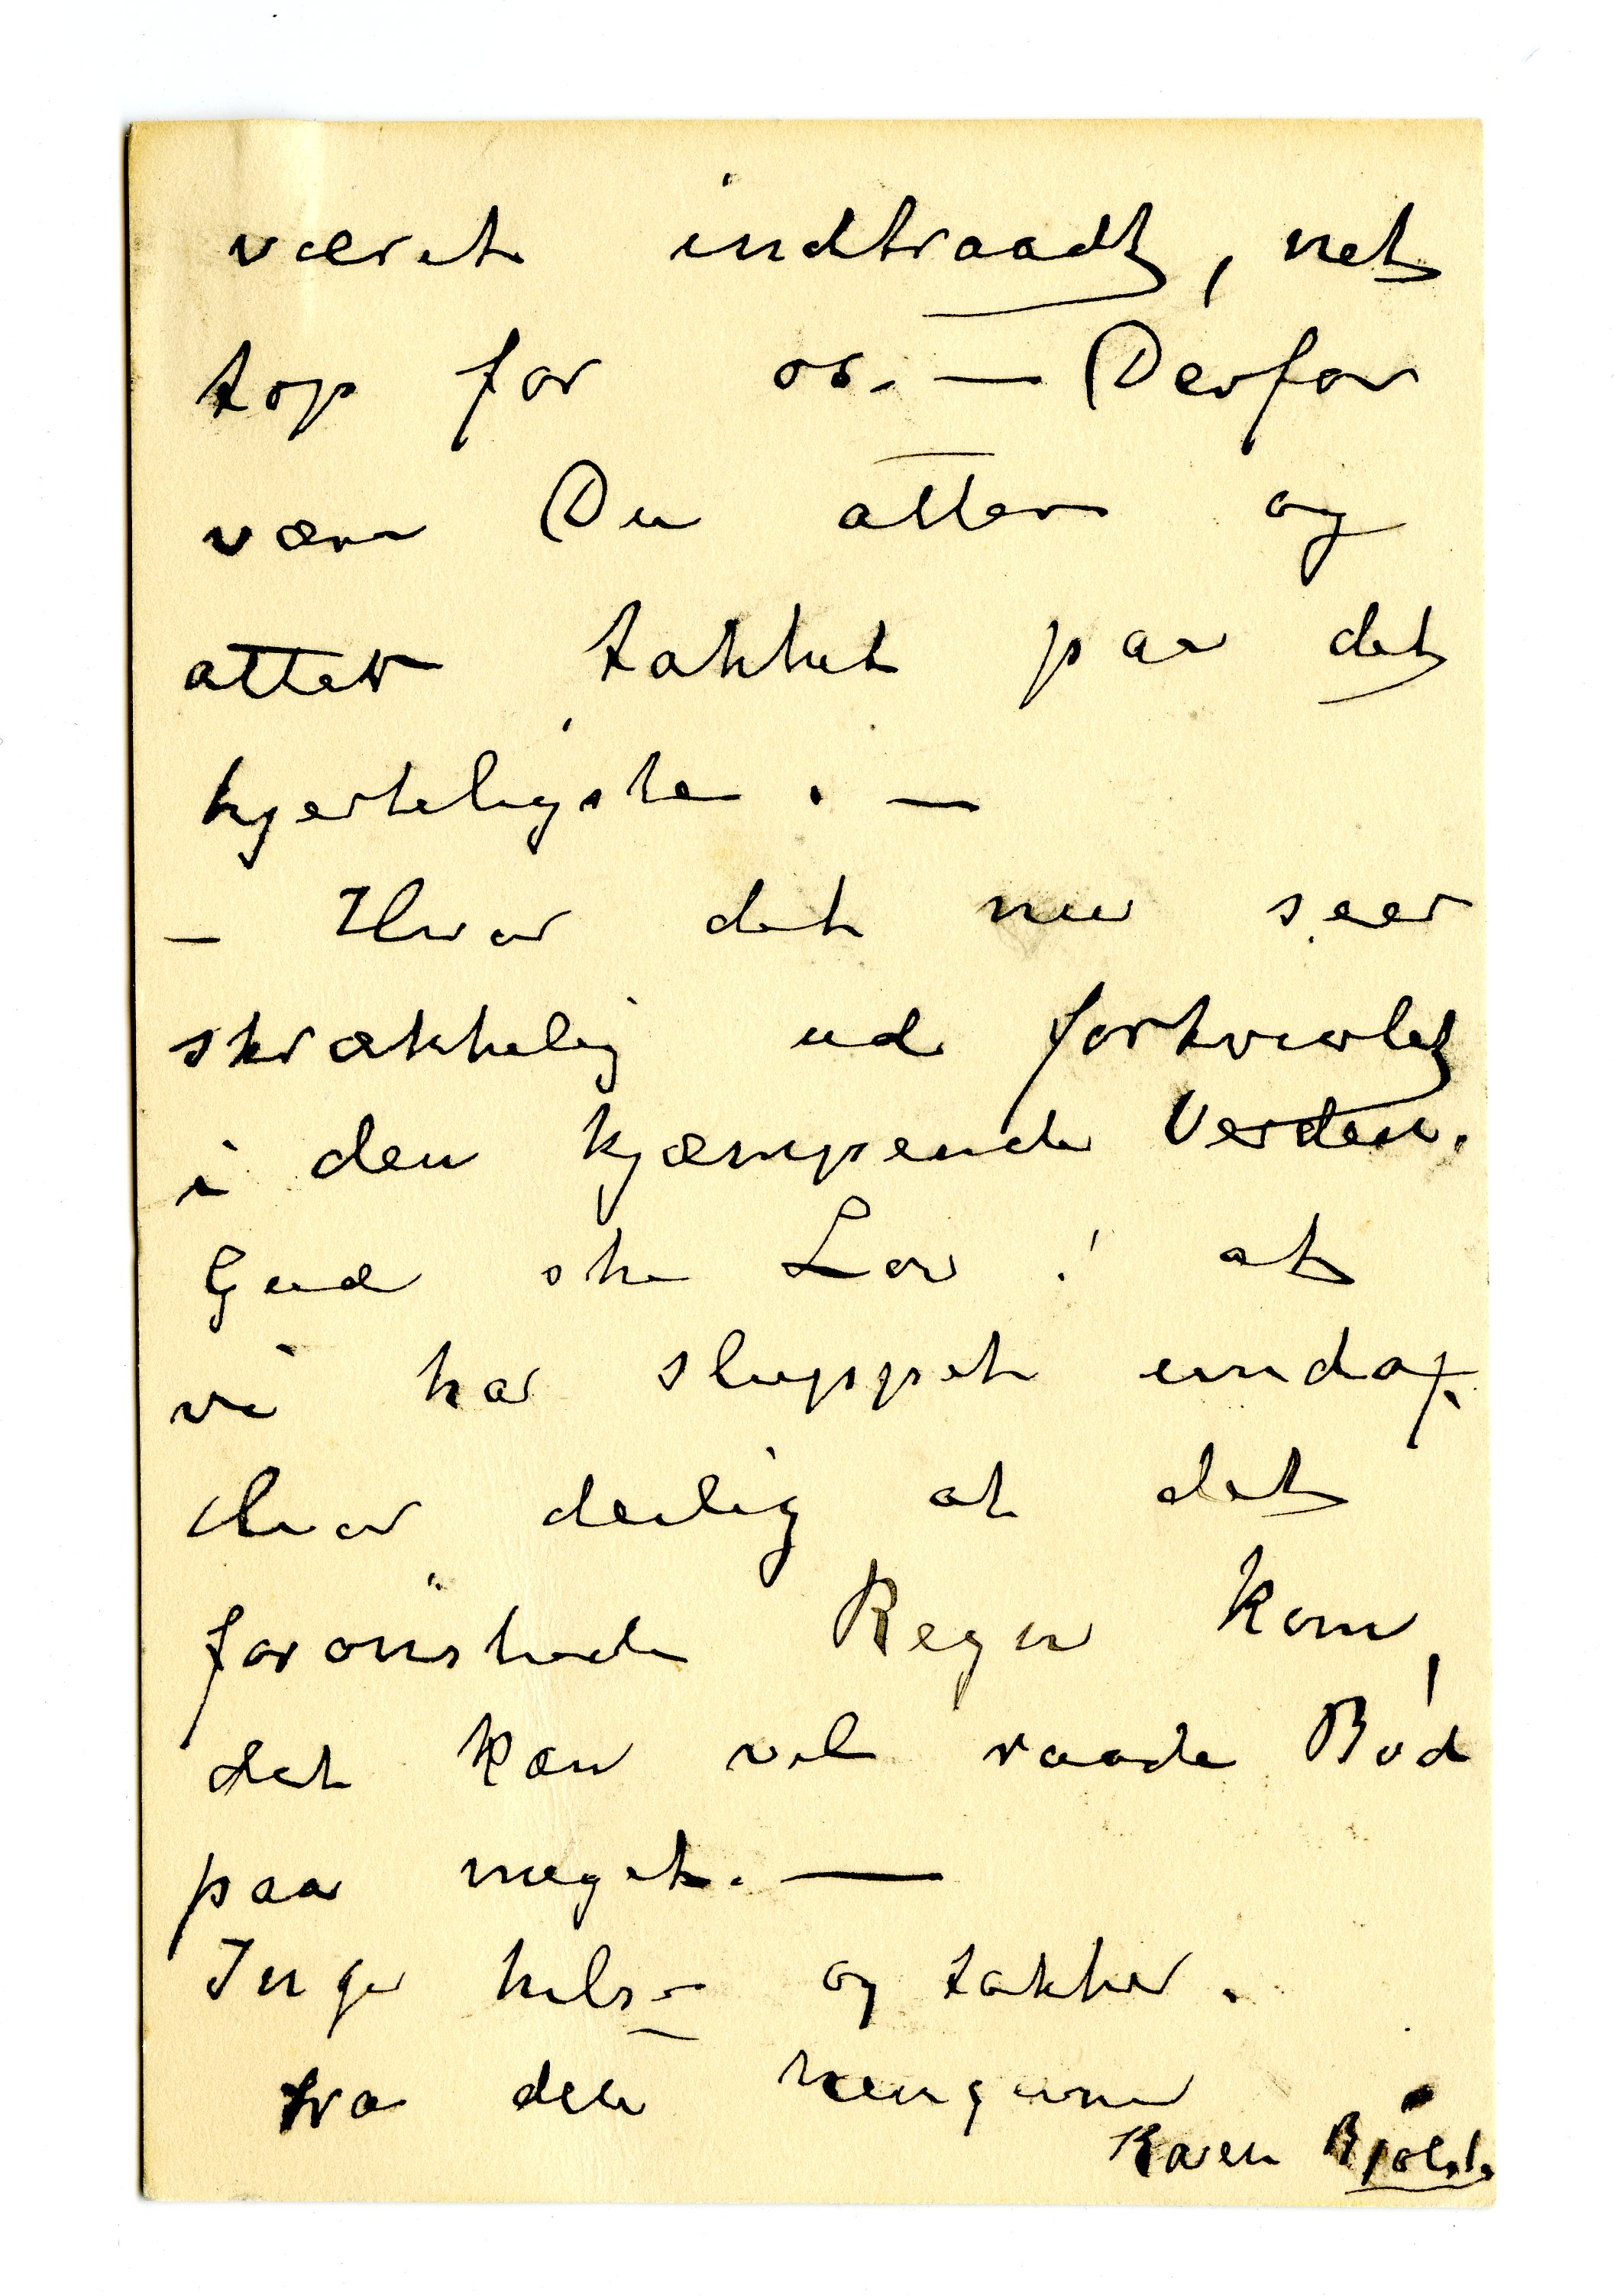 været indtraadt, net
top for os. — Derfor
være Du atter og
atter takket paa det
hjerteligste. —
– Hvor det nu seer
skrækkelig ud fortvivlet
i den kjæmpende Verden.
Gud ske Lov! at
vi har sluppet undaf.
Hvor deilig at det
forönskede Regn kom,
det kan vel raade Bod
paa meget. —
Inga hilser og takker.
fra din hengivne
Karen Bjølstad